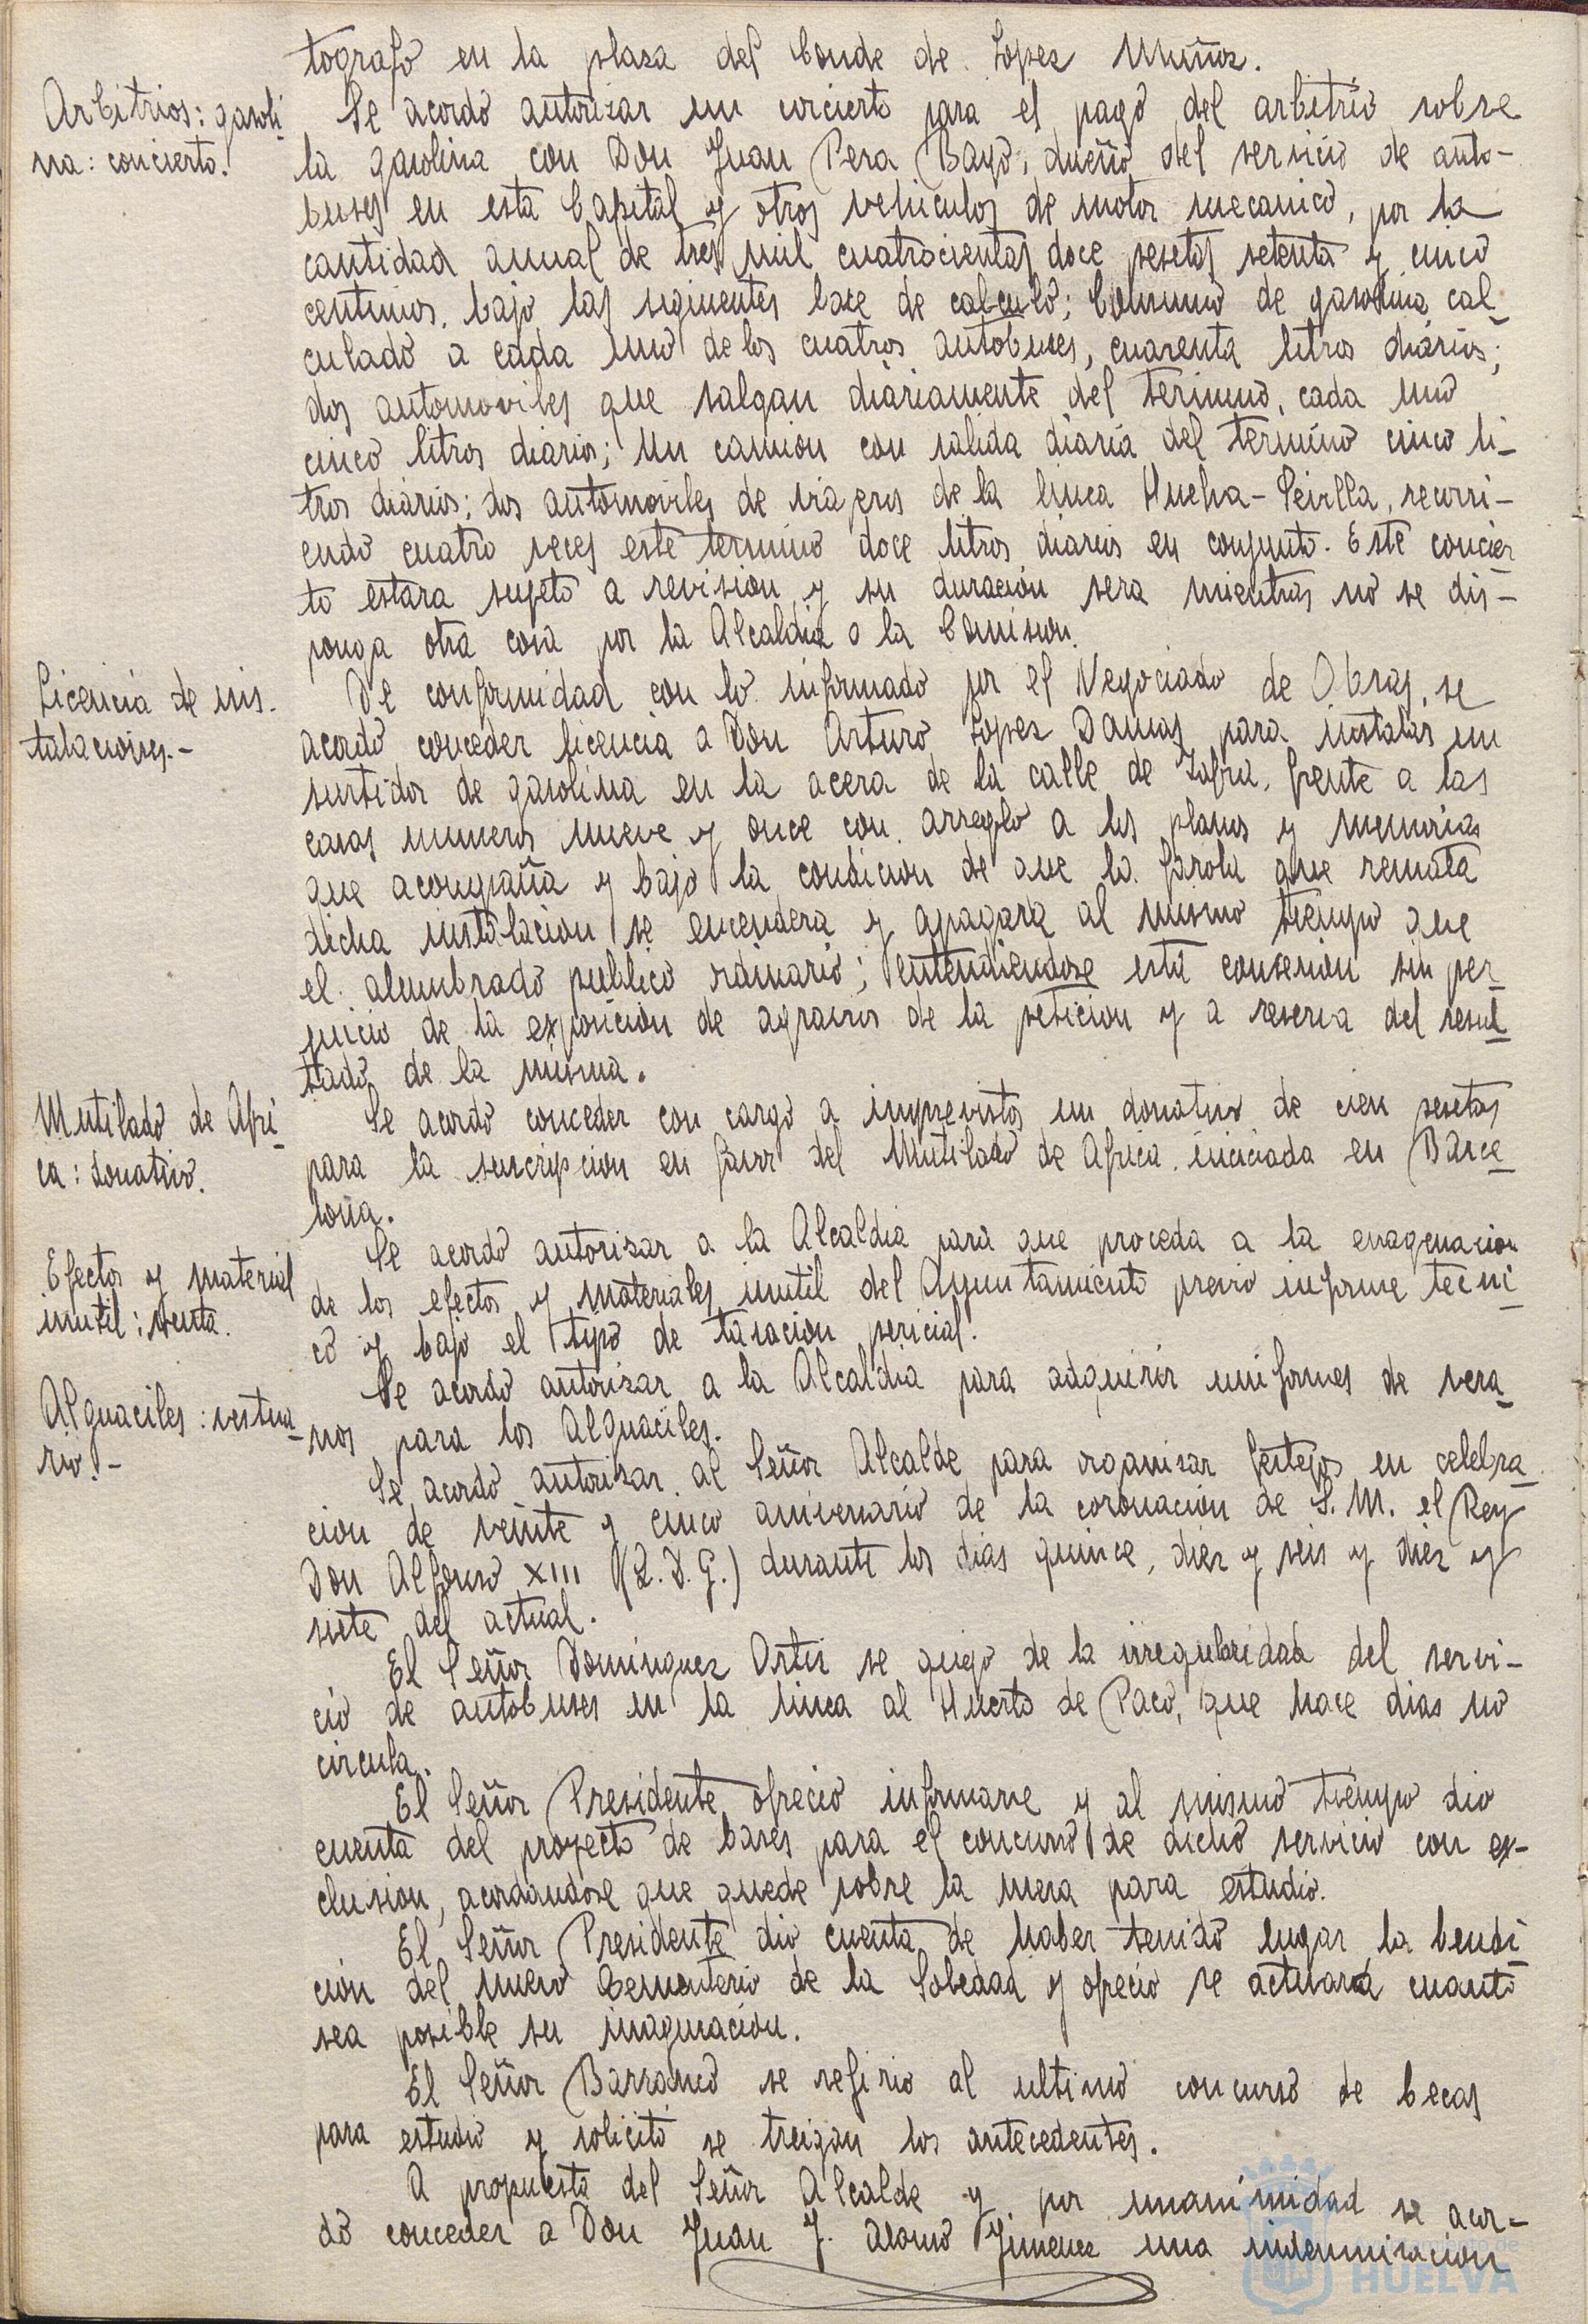 tografo en la plaza del Conde de Lopez Muñoz.
Arbitrios: gasoli-
na: concierto.
Se acordó autorizar un concierto para el pago del arbitrio sobre
la gasolina con Don Juan Pera Bayo, dueño del servicio de auto-
buses en esta Capital y otros vehiculos de motor mecanico, por la
cantidad anual de tres mil cuatrocientas doce pesetas setenta y cinco
centimos, bajo las siguientes base de calculo; Consumo de gasolina cal-
culado a cada uno de los cuatros autobuses, cuarenta litros diarios;
dos automoviles que salgan diariamente del termino, cada uno
cinco litros diarios; Un camion con salida diaria del termino cinco li-
tros diarios; dos automoviles de viajeros de la linea Huelva-Sevilla, recorri-
endo cuatro veces este termino doce litros diarios en conjunto. Este concier-
to estara sujeto a revision y su duración sera mientras no se dis-
ponga otra cosa por la Alcaldia o la Comision.
Licencia de ins-
talaciones.-
De conformidad con lo informado por el Negociado de Obras, se
acordó conceder licencia a Don Arturo Lopez Damas para instalar un
surtidor de gasolina en la acera de la calle de Zafra, frente a las
casas numeros nueve y once con arreglo a los planos y memorias
que acompaña y bajo la condicion de que la farola que remata
dicha instalacion se encendera y apagara al mismo tiempo que
el alumbrado publico ordinario; entendiendose esta consesion sin per-
juicio de la exposicion de agravios de la peticion y a reserva del resul-
tado de la misma.
Mutilado de Afri-
ca: donativo.
Se acordó conceder con cargo a imprevistos un donativo de cien pesetas
para la suscripcion en favor del Mutilado de Africa iniciada en Barce-
lona.
Efectos y material
inutil: venta.
Se acordó autorizar a la Alcaldia para que proceda a la enagenacion
de los efectos y materiales inutil del Ayuntamiento previo informe tecni-
co y bajo el tipo de tasacion pericial.
Alguaciles: vestua-
rio.-
Se acordó autorizar a la Alcaldia para adquirir uniformes de vera-
nos para los Alguaciles.
Se acordó autorizar al Señor Alcalde para organizar festejos en celebra-
cion de veinte y cinco aniversario de la coronación de S. M. el Rey
Don Alfonso XIII (Q. D. G.) durante los dias quince, diez y seis y diez y
siete del actual.
El Señor Dominguez Ortiz se quejo de la irregularidad del servi-
cio de autobuses en la linea al Huerto de Paco, que hace dias no
circula.
El Señor Presidente ofrecio informarse y al mismo tiempo dio
cuenta del proyecto de bases para el concurso de dicho servicio con ex-
clusion, acordandose que quede sobre la mesa para estudio.
El Señor Presidente dio cuenta de haber tenido lugar la bendi-
cion del nuevo Cementerio de la Soledad y ofrecio se activara cuanto
sea posible su inaguracion.
El Señor Barranco se refirio al ultimo concurso de becas
para estudio y solicitó se traigan los antecedentes.
A propuesta del Señor Alcalde y por unanimidad se acor-
dó conceder a Don Juan J. Alonso Jimenez una indemnizacion
HUELVA